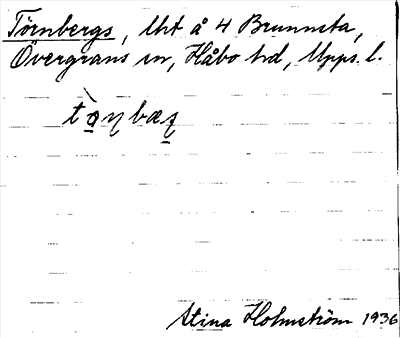 Törnbergs, lht å 4 Brunnsta,
Övergrans sn, Håbo hd, Upps. l.
Stina Holmström 1936